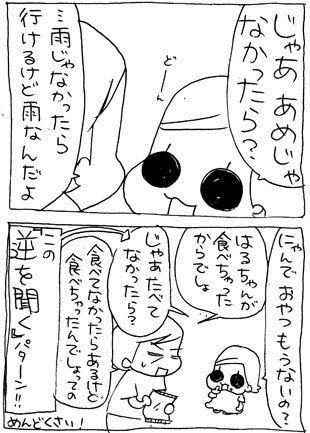 じゃあ あめじゃ
なかったら？
どん
雨じゃなかったら
行けるけど雨なんだよ
にゃんで おやつ もうないの？
はるちゃんが
食べちゃった
からでしょ
じゃあたべて
なかったら？
食べてなかったらあるけど
食べちゃったんでしょっての
この
逆を聞く
パターン!!
めんどくさい！